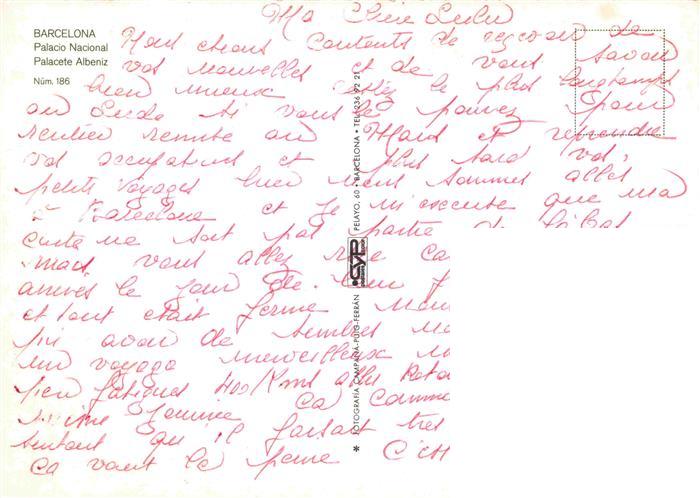 BARCELONA
Palacio Nacional
Palacete Albeniz
Núm. 186
Ma Chère Lulu
Nous etions contents de reçevoir de
vos nouvelles et de vous savoir
bien mieux restez le plus longtemps
au si vous le pouvez pour
rentrer remise au Mans et reprendre
vos occupations et plus tard vos
petits voyages hier nous sommes allés
a Barcelone et je m'excuse que ma
carte ne soit pas partie de
mais vous allez rire
arrives le jour de
et tout etait fermé
un voyage merveilleux
peu fatigués 400/Kms aller
Ca
journée
surtout qu'il faisait très
Ca vaut la peine
FOTOGRAFÍA CAMPAÑÁ-PUIG-FERRÁN
CYP
PELAYO, 60 • BARCELONA • TEL. 236 92 21